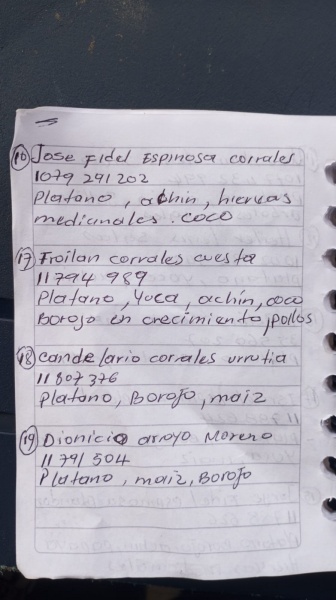 16 Jose Fidel Espinosa corrales
1079 291 202
Platano, achin, hiervas
medicinales. coco
17 Froilan corrales cuesta
11794 989
Platano, Yuca, achin, coco
Borojo en crecimiento, pollos
18 candelario corrales urrutia
11807376
Platano, Borojo, maiz
19 Dionicio arroyo Moreno
1179/504
Platano, maiz, Borojo